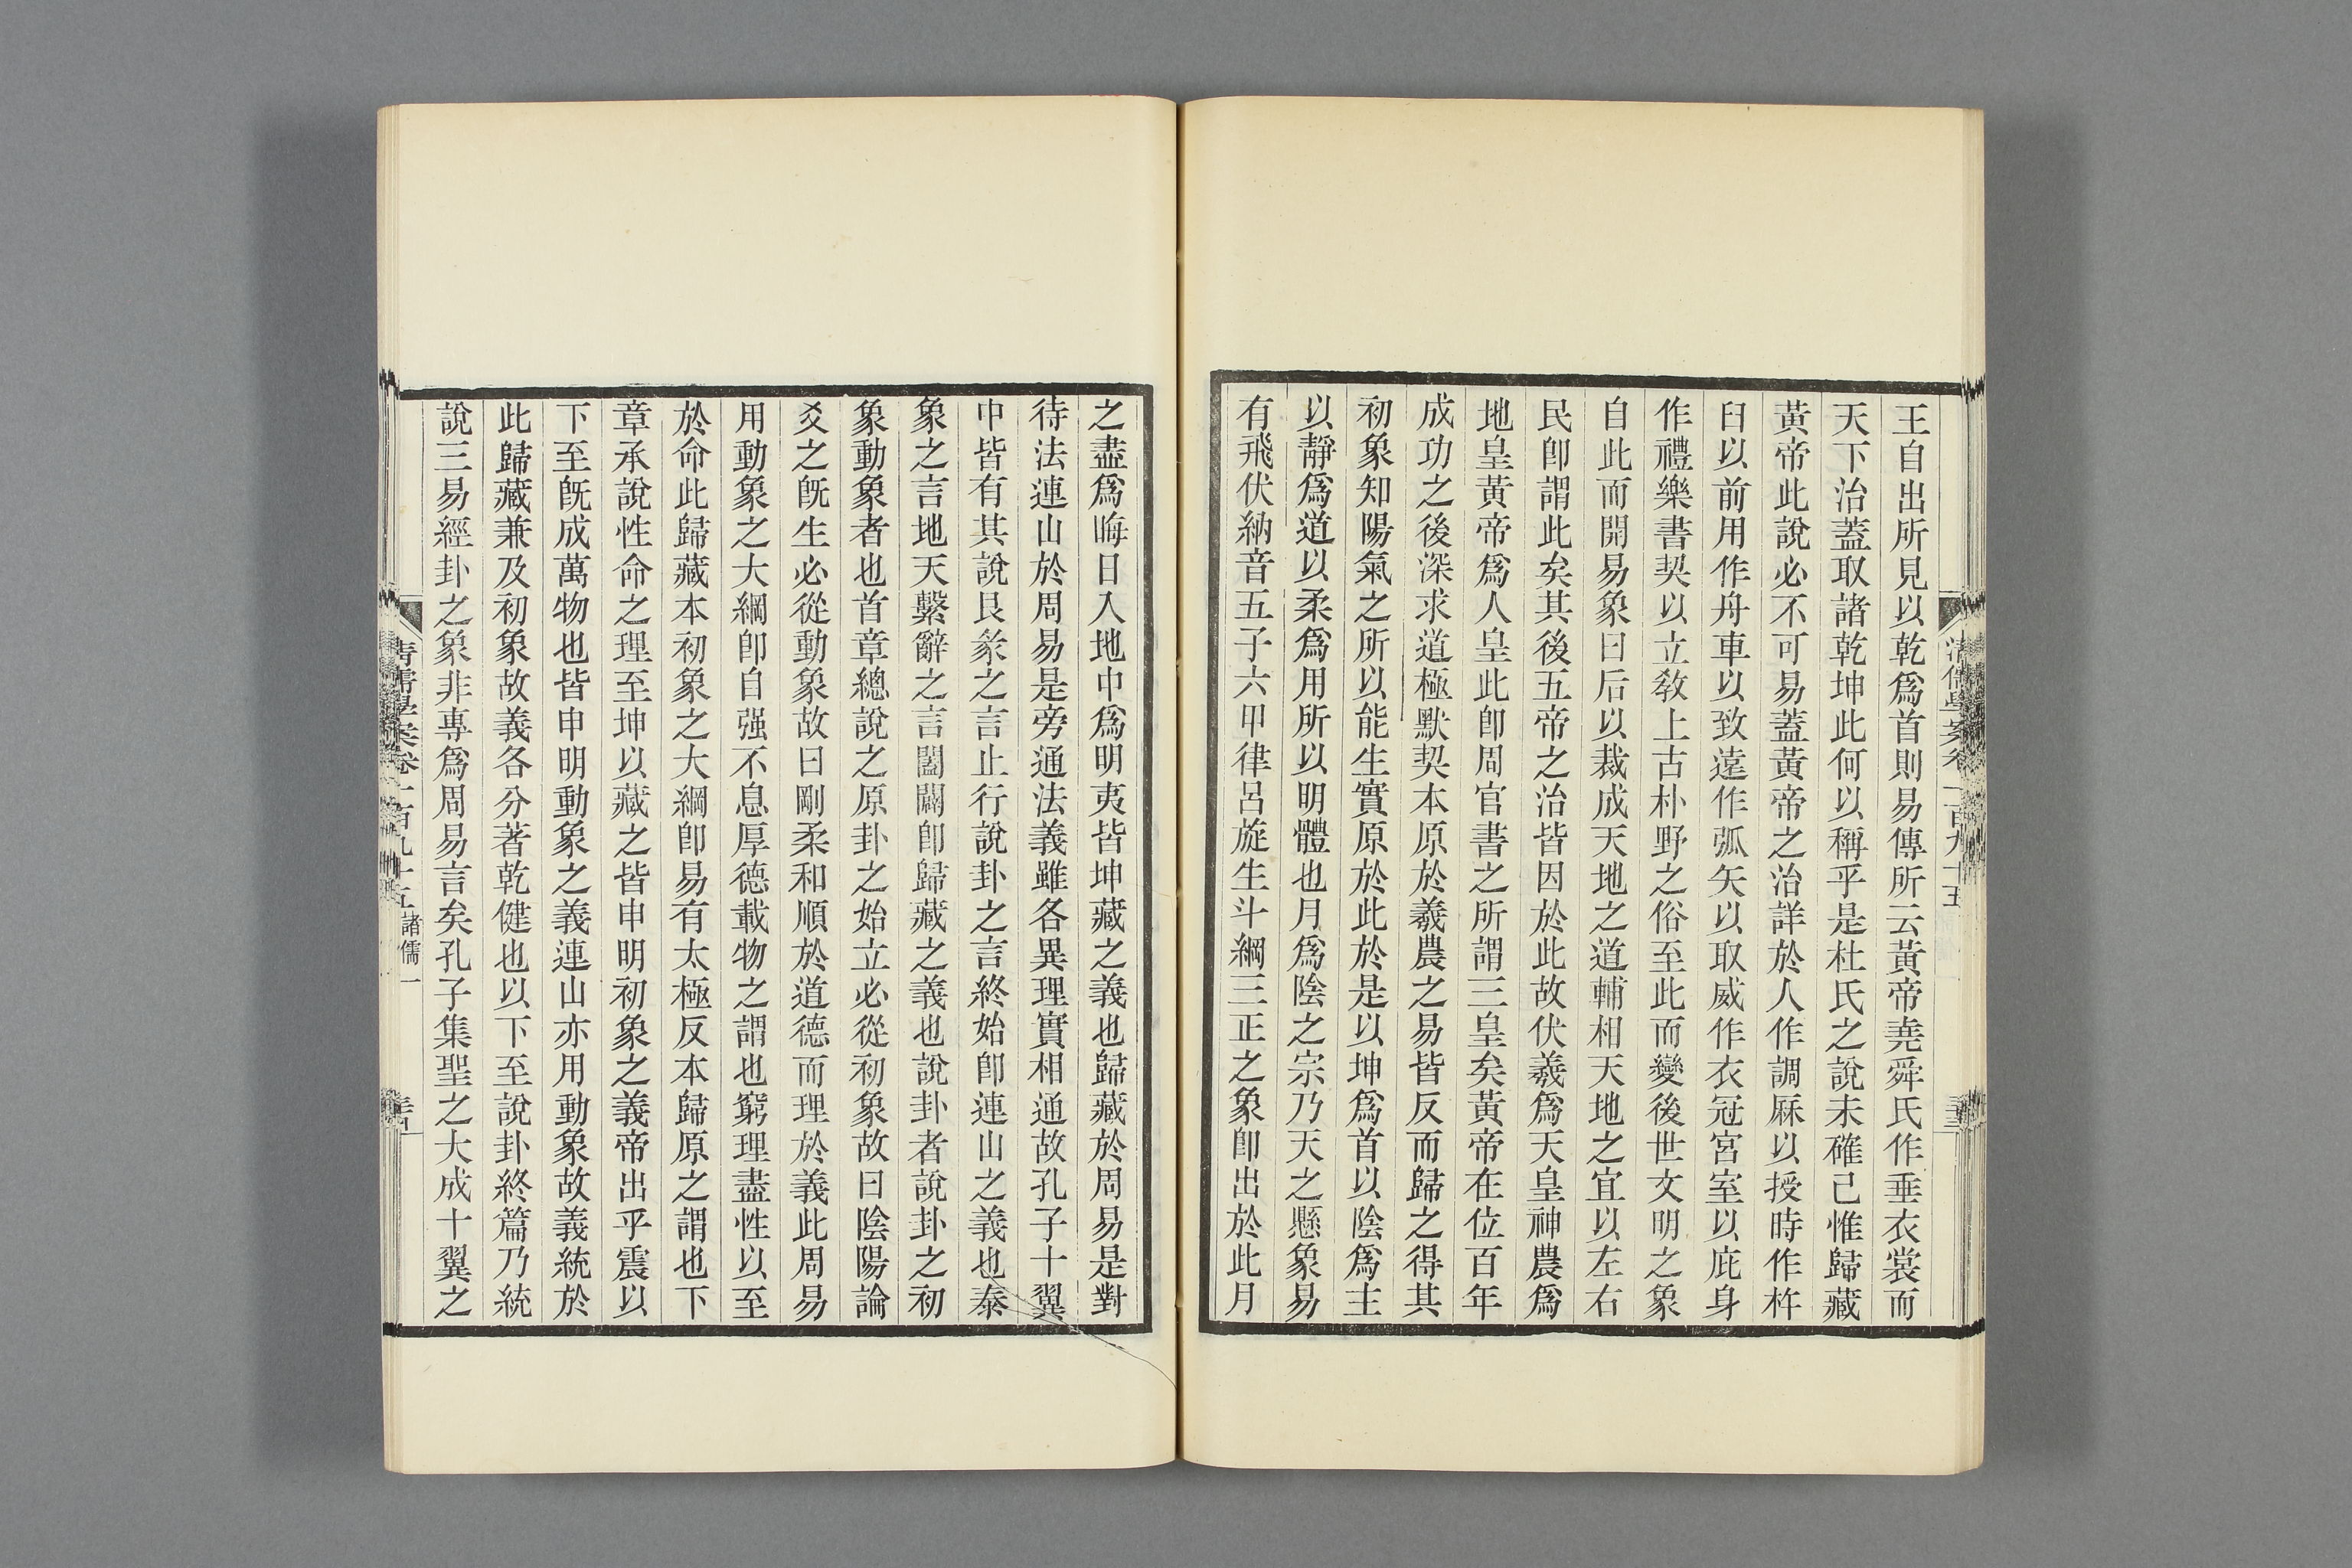 王自出所見以乾爲首則易傳所云黃帝堯舜氏作垂衣裳而
天下治蓋取諸乾坤此何以稱乎是杜氏之說未確己惟歸藏
黃帝此說必不可易蓋黃帝之治詳於人作調厤以授時作杵
臼以前用作舟車以致遠作弧矢以取威作衣冠宮室以庇身
作禮樂書契以立敎上古朴野之俗至此而變後世文明之象
自此而開易象曰后以裁成天地之道輔相天地之宜以左右
民卽謂此矣其後五帝之治皆因於此故伏羲爲天皇神農爲
地皇黃帝爲人皇此卽周官書之所謂三皇矣黃帝在位百年
成功之後深求道極默契本原於羲農之易皆反而歸之得其
初象知陽氣之所以能生實原於此於是以坤爲首以陰爲主
以靜爲道以柔爲用所以明體也月爲陰之宗乃天之懸象易
有飛伏納音五子六甲律呂旋生斗綱三正之象卽出於此月
清儒學案卷一百九十五
之盡爲晦日入地中爲明夷皆坤藏之義也歸藏於周易是對
待法連山於周易是旁通法義雖各異理實相通故孔子十翼
中皆有其說艮彖之言止行說卦之言終始卽連山之義也泰
象之言地天繫辭之言闔闢卽歸藏之義也說卦者說卦之初
象動象者也首章總說之原卦之始立必從初象故曰陰陽論
爻之旣生必從動象故曰剛柔和順於道德而理於義此周易
用動象之大綱卽自强不息厚德載物之謂也窮理盡性以至
於命此歸藏本初象之大綱卽易有太極反本歸原之謂也下
章承說性命之理至坤以藏之皆申明初象之義帝出乎震以
下至旣成萬物也皆申明動象之義連山亦用動象故義統於
此歸藏兼及初象故義各分著乾健也以下至說卦終篇乃統
說三易經卦之象非專爲周易言矣孔子集聖之大成十翼之
清儒學案卷一百九十五 諸儒一